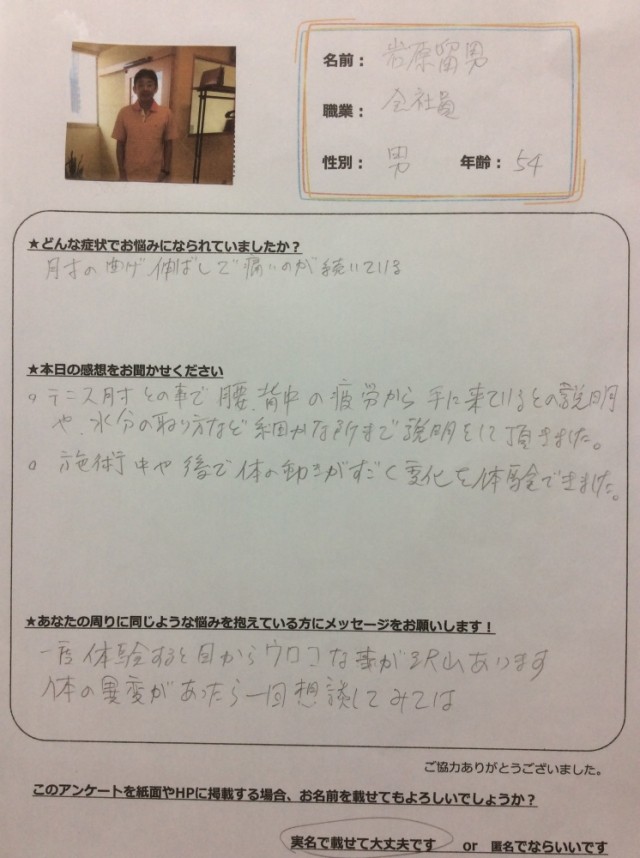 名前： 岩原留男
職業： 会社員
性別： 男 年齢： 54
★どんな症状でお悩みになられていましたか？
肘の曲げ伸ばしで痛いのが続いている
★本日の感想をお聞かせください
。テニス肘その事で腰、背中の疲労から手に来ているその説明
や、水分の取り方など細かな所まで説明をして頂きました。
。施術中や後で体の動きがすごく変化を体験できました。
★あなたの周りに同じような悩みを抱えている方にメッセージをお願いします！
一度体験すると目からウロコな事が沢山あります
体の異変があったら一回想談してみては
ご協力ありがとうございました。
このアンケートを紙面やHPに掲載する場合、お名前を載せてもよろしいでしょうか？
実名で載せて大丈夫です or 匿名でならいいです